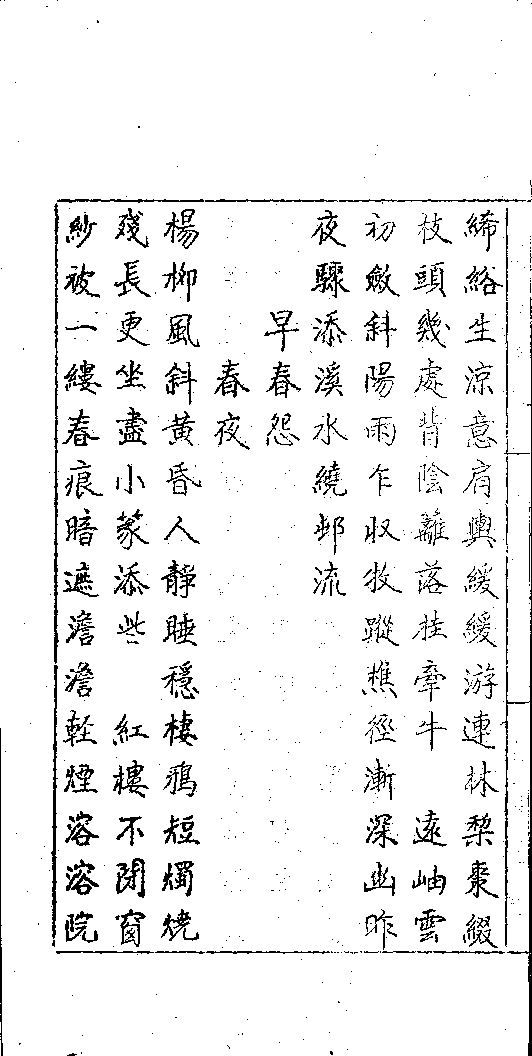 絺綌生凉意肩輿緩緩游連林梨棗綴
枝頭幾處背陰離落挂牽牛　遠岫雲
初斂斜陽雨乍収牧蹤樵徑漸深幽昨
夜驟添溪水繞邨流
早春怨
春夜
楊柳風斜黄昏人靜睡穩棲鴉短燭燒
殘長更坐盡小篆添些　紅樓不閉窗
紗被一縷春痕暗遮澹澹輕煙溶溶院